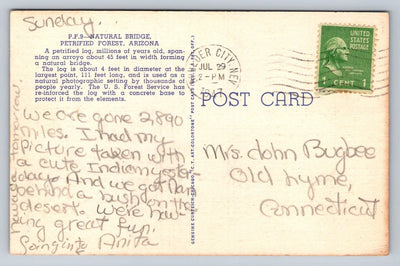 Sunday.
P.F.9—NATURAL BRIDGE,
PETRIFIED FOREST, ARIZONA
A petrified log, millions of years old, span-
ning an arroyo about 45 feet in width forming
a natural bridge.
The log is about 4 feet in diameter at the
largest point, 111 feet long, and is used as a
natural photographic setting by thousands of
people yearly. The U. S. Forest Service has
re-inforced the log with a concrete base to
protect it from the elements.
We are gone 2,890
miles. I had my
picture taken with
a cute Indian yester-
day. And we got
behind a bush on the
desert. We're hav-
ing great fun.
Going in to
Anita
tomorrow
GENUINE CURTEICH-CHICAGO "C. T. ART-COLORTONE" POST CARD (REG. U. S. PAT. OFF.)
CITY, NEV.
JUL 29
2-PM
1947
UNITED
STATES
POSTAGE
1 CENT 1
POST CARD
Mrs. John Bugbee
Old Lyme,
Connecticut